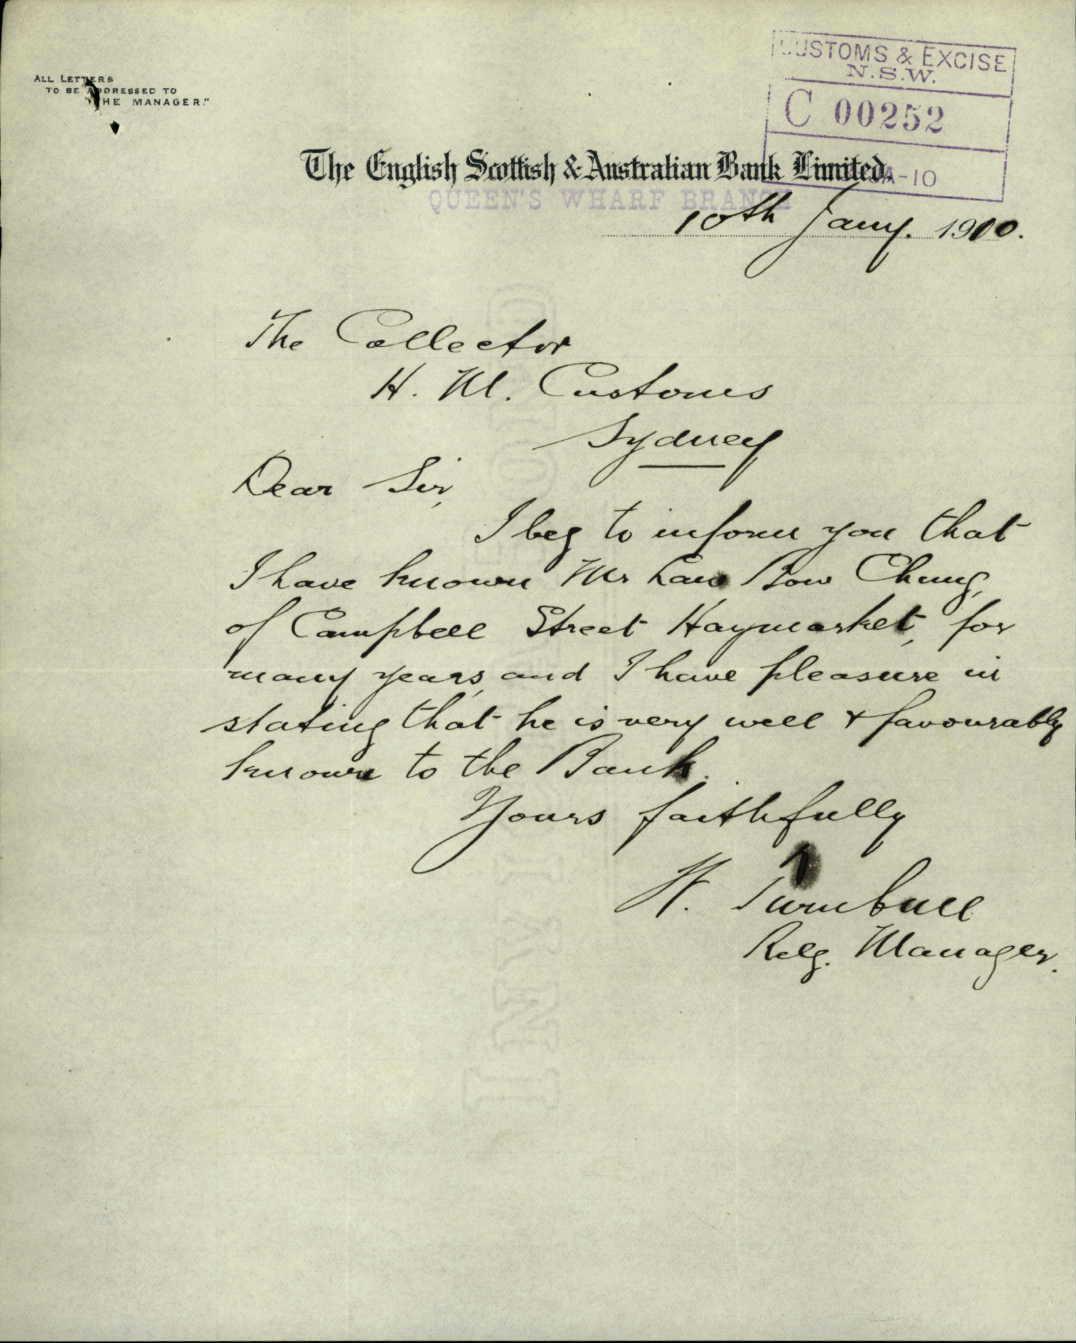 ALL LETTERS
TO BE ADDRESSED TO
"THE MANAGER."
CUSTOMS & EXCISE
N.S.W.
C 00252
A-10
The English Scottish & Australian Bank Limited.
QUEEN'S WHARF BRANCH
10th Jany. 1910.
The Collector
H. M. Customs
Sydney
Dear Sir,
I beg to inform you that
I have known Mr Law Bow Chung,
of Campbell Street Haymarket, for
many years, and I have pleasure in
stating that he is very well & favourably
known to the Bank.
Yours faithfully
H. Turnbull
Relg. Manager.